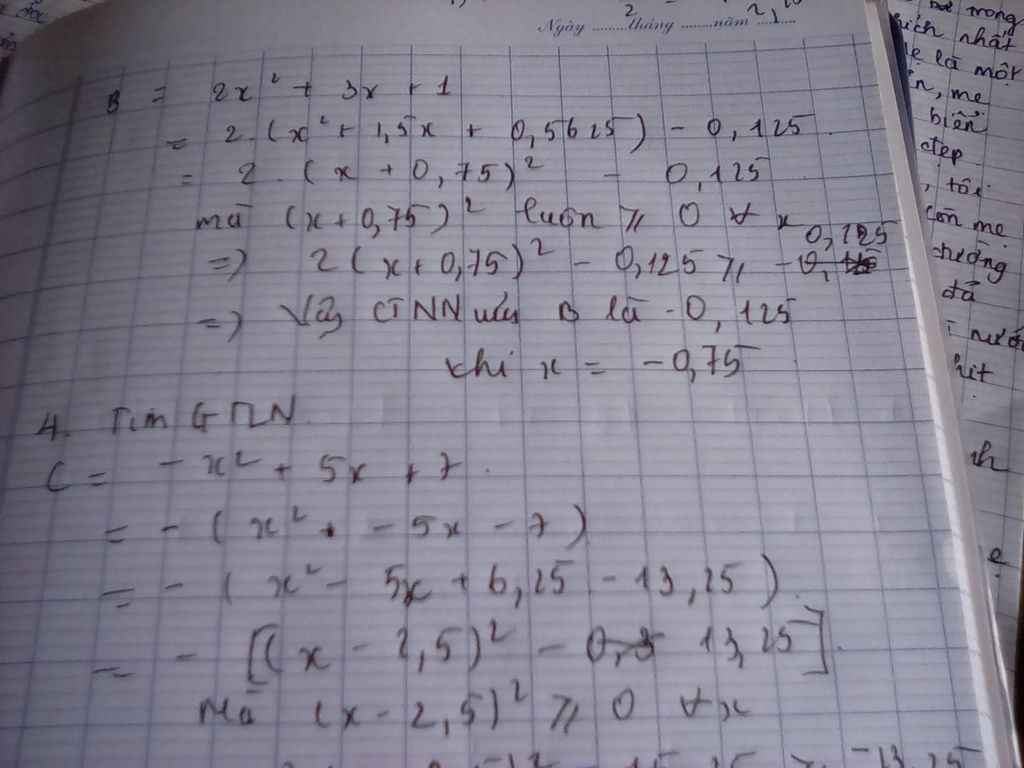 Ngày ........ tháng ........ năm ........
B = 2x² + 3x + 1
= 2.(x² + 1,5x + 0,5625) - 0,125
= 2.(x + 0,75)² - 0,125
mà (x + 0,75)² luôn ≥ 0 ∀ x
=> 2(x + 0,75)² - 0,125 ≥ - 0,125
=> Vậy GTNN của B là -0,125
khi x = -0,75
4. Tìm GTLN
C = - x² + 5x + 7.
= - (x² - 5x - 7)
= - (x² - 5x + 6,25 - 13,25)
= - [(x - 2,5)² - 13,25].
Mà (x - 2,5)² ≥ 0 ∀x
trong
nhất
là một
mẹ
biển
đẹp
, tôi
còn mẹ
đã